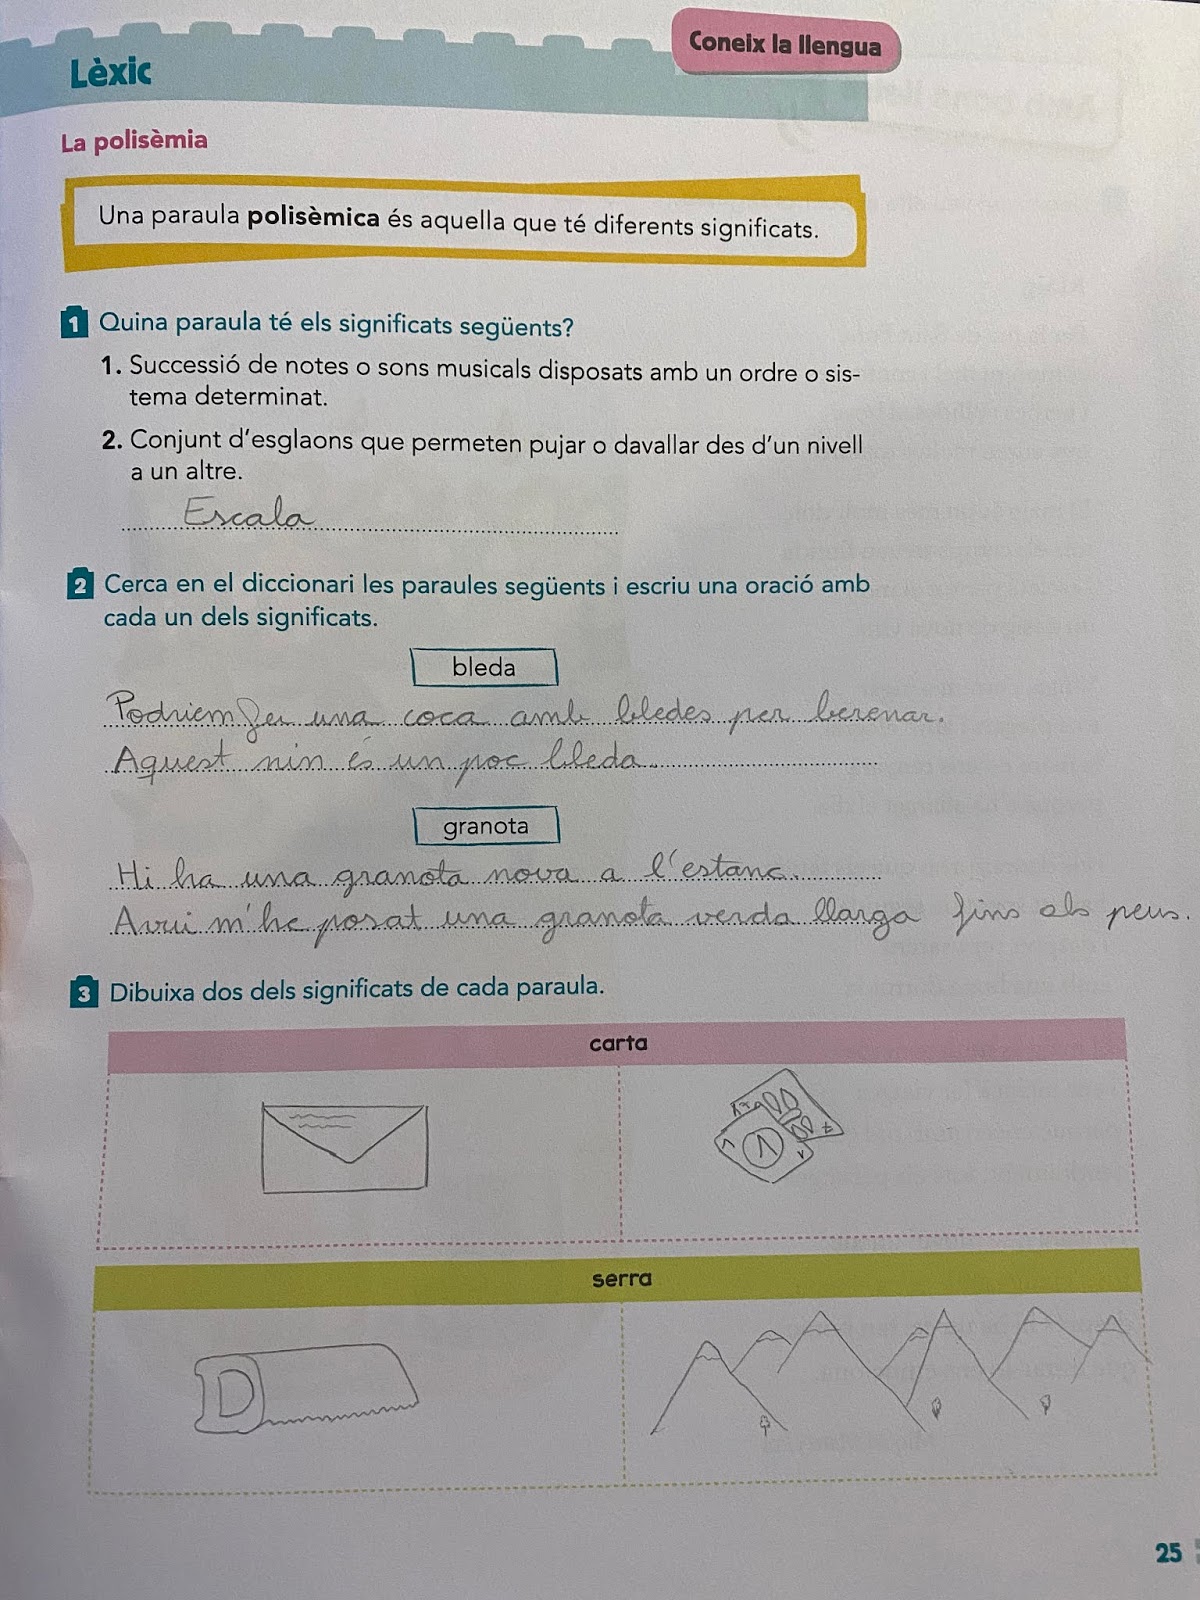 Coneix la llengua
Lèxic
La polisèmia
Una paraula polisèmica és aquella que té diferents significats.
1 Quina paraula té els significats següents?
1. Successió de notes o sons musicals disposats amb un ordre o sis-
tema determinat.
2. Conjunt d'esglaons que permeten pujar o davallar des d'un nivell
a un altre.
Escala
2 Cerca en el diccionari les paraules següents i escriu una oració amb
cada un dels significats.
bleda
Podriem fer una coca amb bledes per berenar.
Aquest nin és un poc bleda.
granota
Hi ha una granota nova a l'estanc.
Avui m'he posat una granota verda llarga fins als peus.
3 Dibuixa dos dels significats de cada paraula.
carta
serra
25